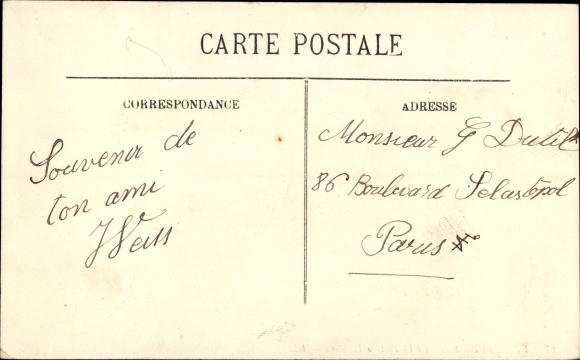 CARTE POSTALE
CORRESPONDANCE
Souvenir de
ton ami
Weiss
ADRESSE
Monsieur G Dutil
86 Boulevard Sebastopol
Paris